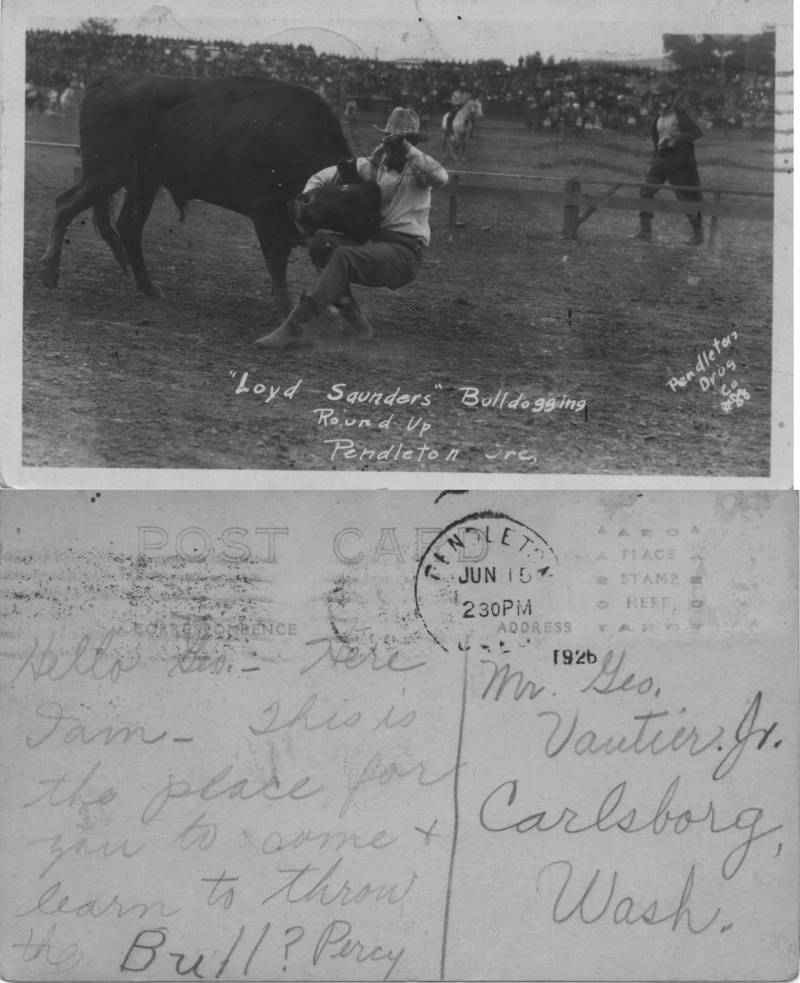 "Loyd Saunders" Bulldogging
Round Up
Pendleton Ore,
Pendleton
Drug
Co
POST CARD
PENDLETON
JUN 15
230PM
1926
AZO
PLACE
STAMP
HERE
AZO
CORRESPONDENCE
ADDRESS
Hello Geo. - Here
I am - This is
the place for
you to come +
learn to throw
the Bull? Percy
Mr. Geo.
Vautier. Jr.
Carlsborg,
Wash.